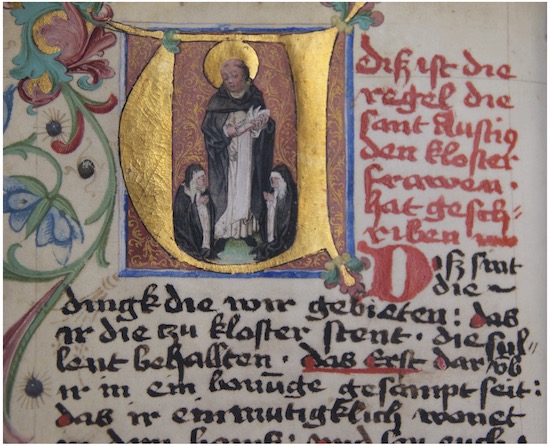 diß ist die
regel die
sant Austius
den kloster
frawen.
hat gesch=
riben
Diß sint
die
dingk die wir gebieten: das
ir die zu kloster stent. die sul=
lent behallten. das Erst dar vb
ir in ein samnunge gesampt seit:
das ir einmutigklich wonet
in dem